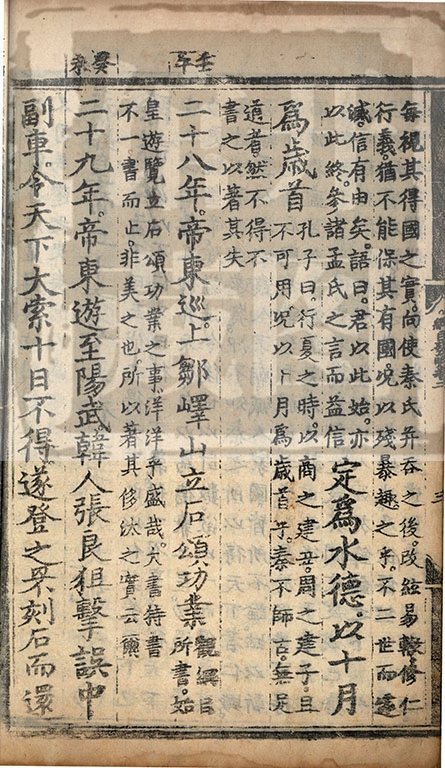 壬午
癸未
每視其得國之實。向使秦氏并吞之後改絃易轍。修仁
行義。猶不能保其有國。况以殘暴趣之乎。不二世而遂
滅。信有由矣。語曰。君以此始。亦
以此終。參諸孟氏之言而益信
定爲水德。以十月
爲歲首
孔子曰。行夏之時。以商之建丑。周之建子。且
不可用。况以十月爲歲首乎。秦不師古。無足
道者。然不得不
書之以著其失
二十八年。帝東巡。上鄒嶧山立石頌功業
觀綱目
所書。始
皇遊覽立石頌功業之事。洋洋乎盛哉。大書特書
不一書而止。非美之也。所以著其侈汰之實云爾
二十九年。帝東遊至陽武。韓人張良狙擊誤中
副車。令天下大索十日不得。遂登之罘刻石而還